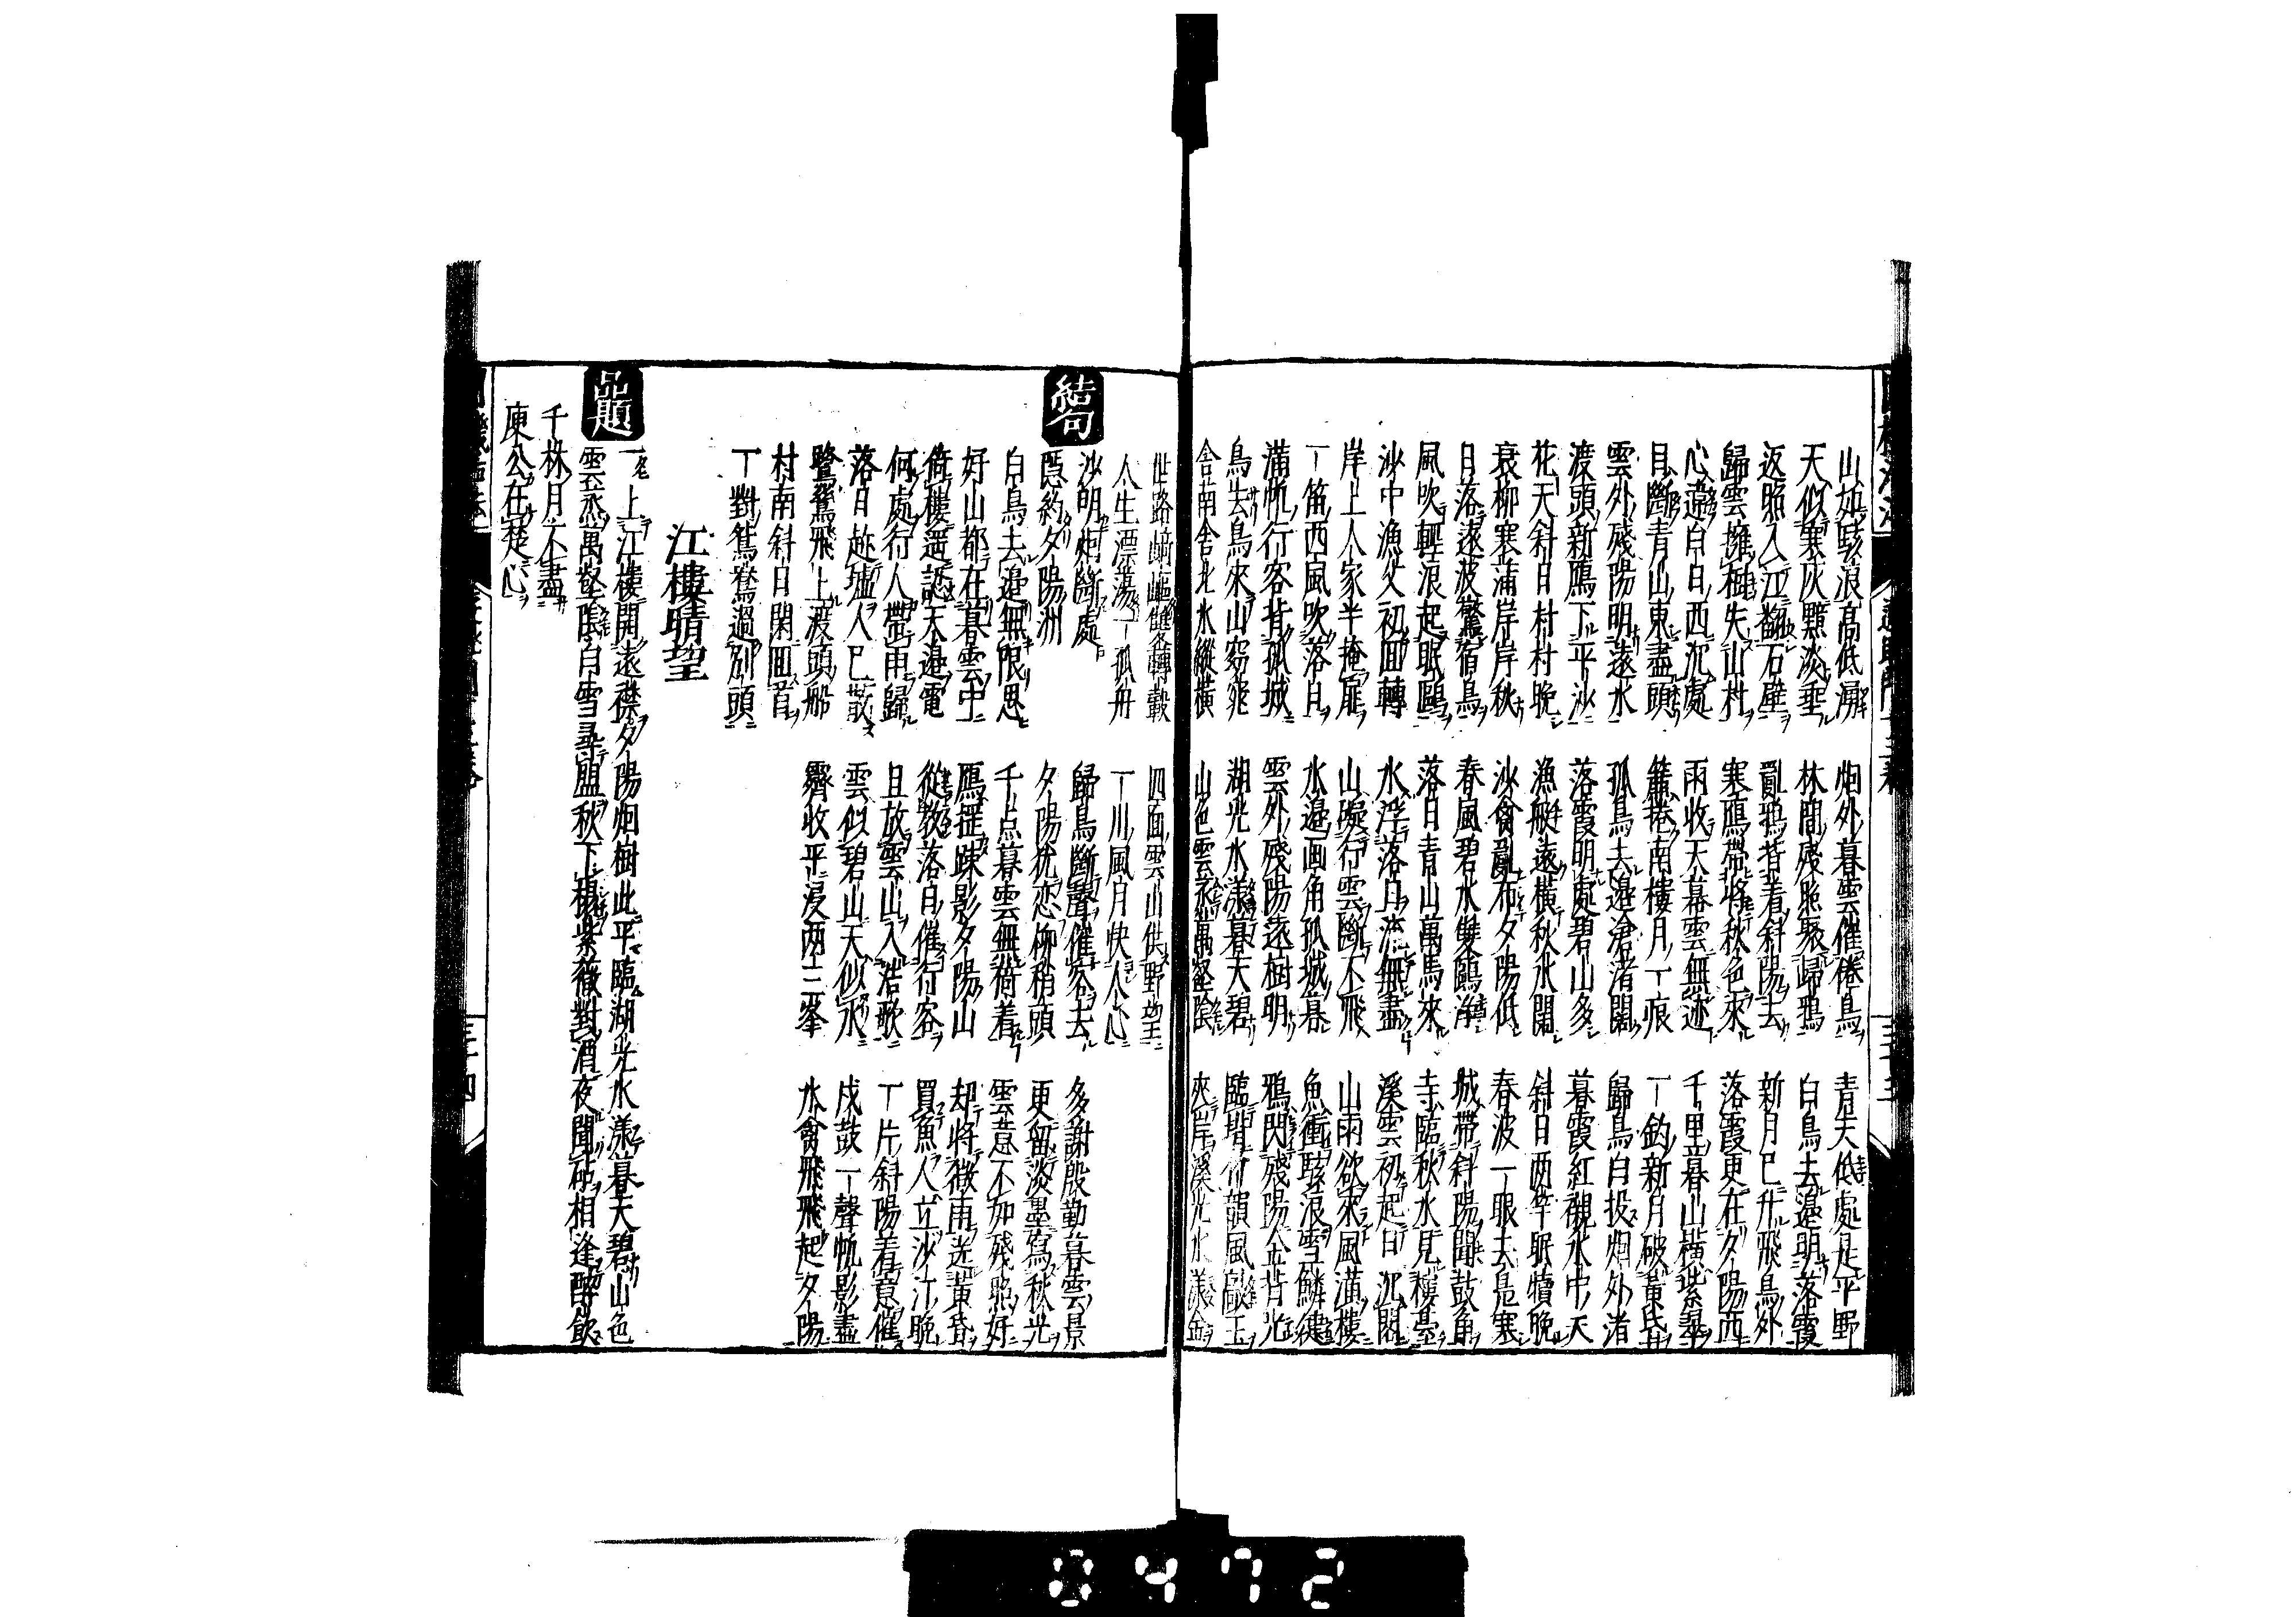 山如駭浪高低涌 烟外暮雲催倦鳥 青天低處是平野
天似寒灰黯淡垂 林間殘照聚歸鴉 白鳥去邊明落霞
返照入江翻石壁 亂鴉背着斜陽去 新月已升飛鳥外
歸雲擁樹失山村 寒鴈帶將秋色來 落霞更在夕陽西
心違白日西沉處 雨收天幕雲無迹 千里暮山橫紫翠
目斷青山東盡頭 簾捲南樓月一痕 一鈎新月破黃昏
雲外殘陽明遠水 孤鳥去邊滄渚闊 歸鳥自投烟外渚
渡頭新鴈下平沙 落霞明處碧山多 暮霞紅襯水中天
花天斜日村村晚 漁艇遠橫秋水闊 斜日两竿眠犢晚
衰柳寒浦岸岸秋 沙禽亂布夕陽低 春波一眼去是寒
日落遠波驚宿鳥 春風碧水雙鷗淨 城帶斜陽聞鼓角
風吹輕浪起眠鷗 落日青山萬馬來 寺臨秋水見樓臺
沙中漁父初囬轉 水浮落日流無盡 溪雲初起日沉閣
岸上人家半掩扉 山礙行雲斷不飛 山雨欲來風滿樓
一笛西風吹落日 水邊画角孤城暮 魚衝駭浪雪鱗健
滿帆行客背孤城 雲外殘陽遠樹明 鴉閃殘陽金背光
鳥去鳥來山窈窕 湖光水漾暮天碧 臨堦竹韻風敲玉
舍南舍北水縱橫 山色雲烝萬壑陰 夾岸溪光水漾金
世路崎嶇雙轉轂 四面雲山供野望
人生漂蕩一孤舟 一川風月快人心
結句
沙明烟斷處 歸鳥斷聲催客去 多謝殷勤暮雲景
隱約夕陽洲 夕陽犹恋柳稍頭 更留淡墨寫秋光
白鳥去邊無限思 千点暮雲無荷着 雲意不如殘照好
好山都在暮雲中 鴈擺踈影夕陽山 却將微雨送黃昏
倚樓遥認天邊電 從教落日催行客 買魚人立沙汀晚
何處行人帶雨歸 且放雲山入浩歌 一片斜陽着意催
落日趂墟人已散 雲似碧山天似水 戍鼓一聲帆影盡
鷺鶿飛上渡頭船 霽收平浸两三峯 水禽飛飛起夕陽
村南斜日閑囬首
一對鴛鴦過別頭
江樓晴望
品題
一上江樓開遠襟夕陽烟樹此平臨湖光水漾暮天碧山色
雲烝萬壑陰白雪尋盟秋下榻紫薇對酒夜聞砧相逢醉飲
千株月不盡
庾公在楚心